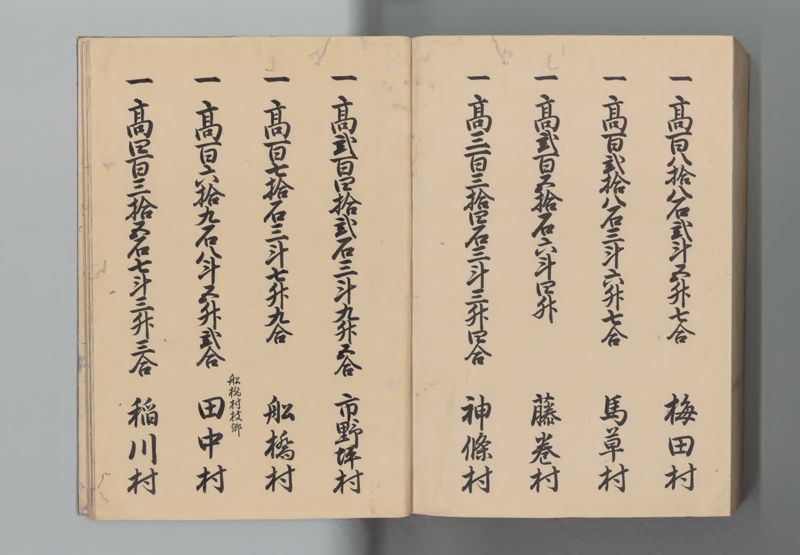 一高百八拾八石弐斗五升七合 梅田村
一高百弐拾八石三斗六升七合 馬草村
一高弐百五拾石六斗四升 藤巻村
一高三百三拾四石三斗三升四合 神條村
一高弐百四拾弐石三斗九升五合 市野坪村
一高百七拾石三斗七升九合 船橋村
船橋村枝郷
一高百六拾九石八斗五升弐合 田中村
一高四百三拾五石七斗三升三合 稲川村